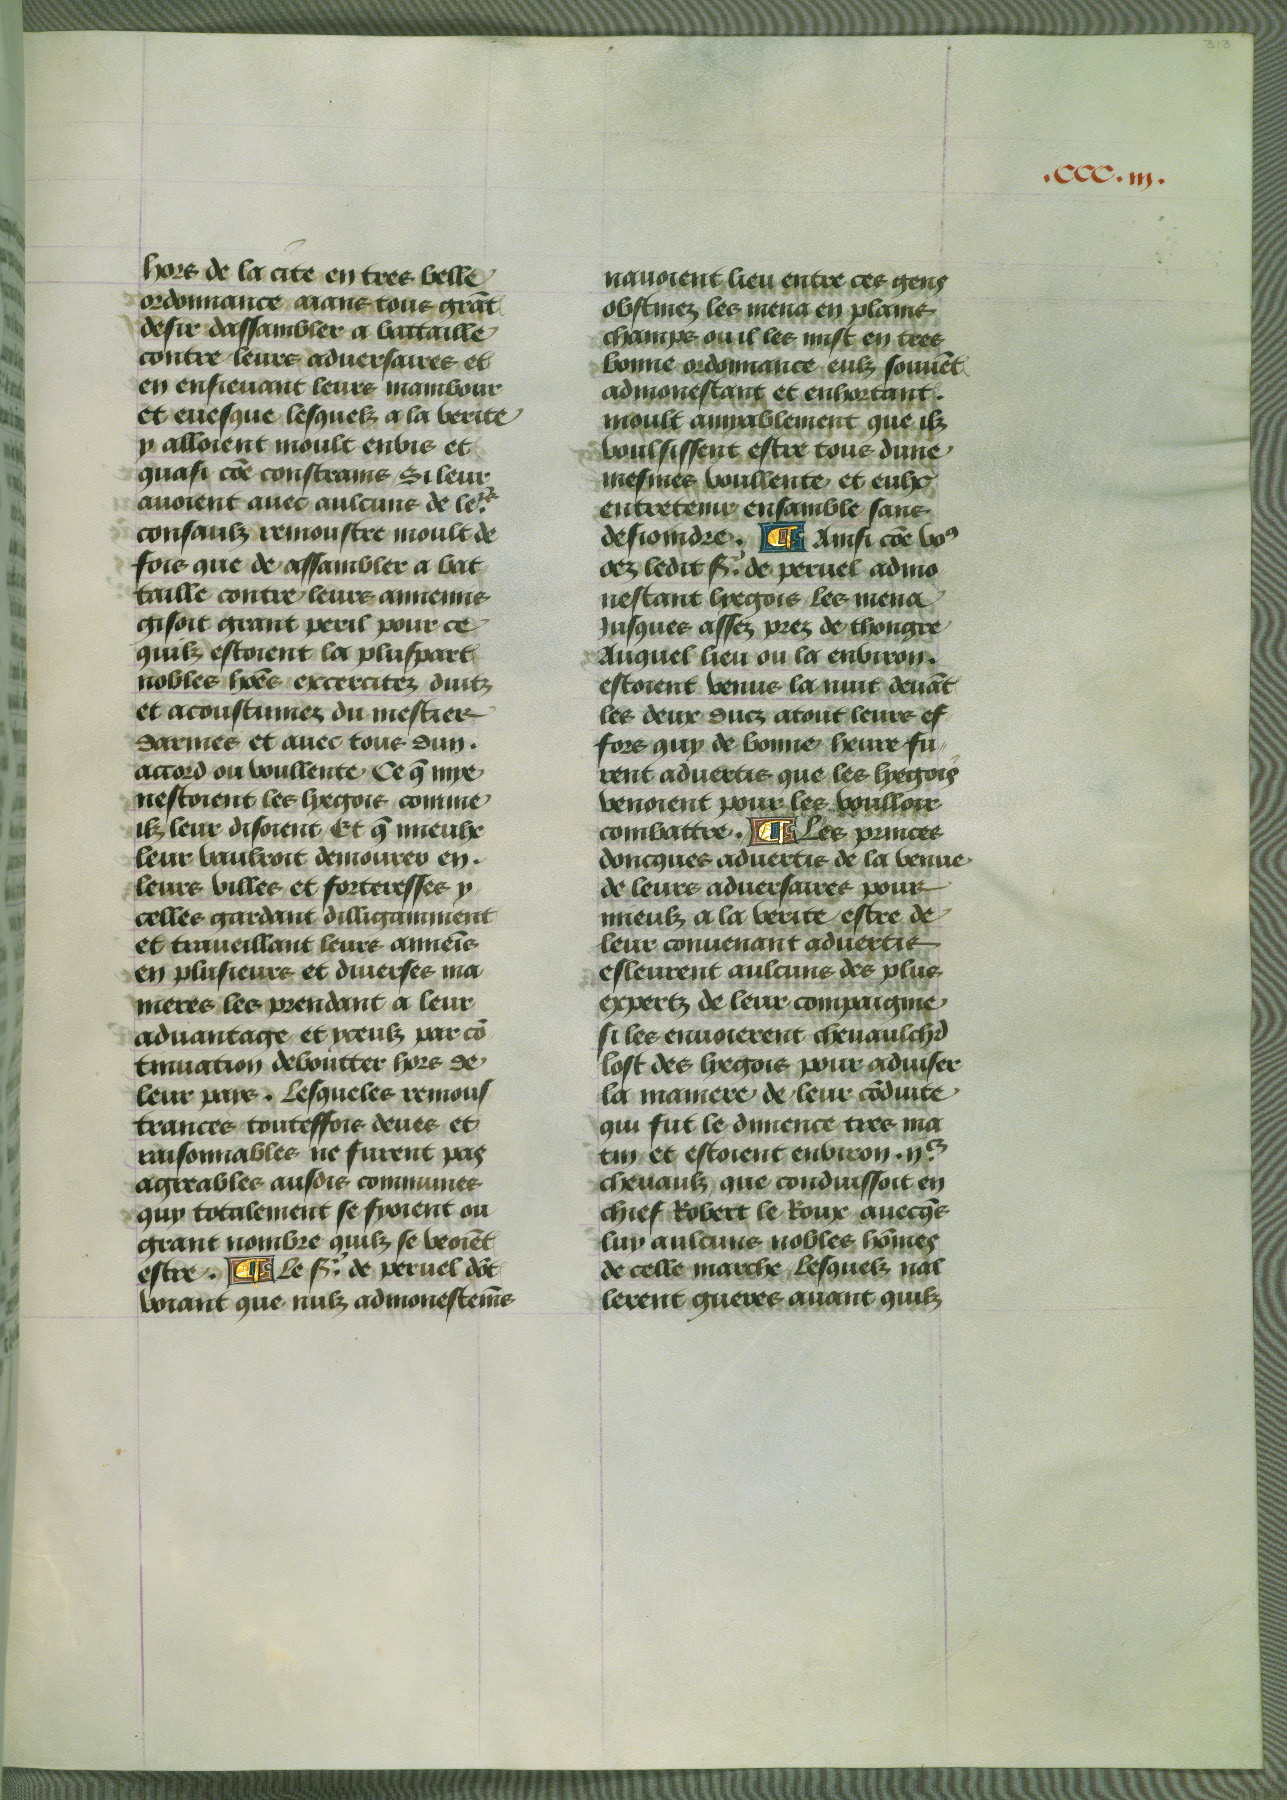 313
.CCC.iij.
hors de la cite en tres belle
ordonnance aians tous grãt
desir dassambler a battaille
contre leurs aduersaires et
en ensieuant leurs mambour
et euesque lesquelz a la verite
y alloient moult enuis et
quasi cõe constrains Si leur
auoient auec aulcuns de le.rs
consaulz remoustre moult de
fois que de assambler a bat
taille contre leurs annemis
gisoit grant peril pour ce
quilz estoient la pluspart
nobles hões excercitez duitz
et acoustumez du mestier
darmes et auec tous dun.
accord ou voullente Ce q̃ mye
nestoient les lyegois comme
ilz leur disoient Et q̃ mieulx
leur vauldroit demourer en.
leurs villes et forteresses y
celles gardant dilligamment
et traueillant leurs annẽis
en plusieurs et diuerses ma
nieres les prendant a leur
aduantage et yceulz par cõ
tinuation deboutter hors de
leur pays. Lesqueles remous
trances touteffois deues et
raisonnables ne furent pas
agreables ausdis communes
quy totalement se fyoient ou
grant nombre quilz se veoiẽt
estre. ¶ Le S.r de peruel dõt
voiant que nulz admonestemẽs
nauoient lieu entre ces gens
obstinez les mena en plains
champs ou il les mist en tres
bonne ordonnance eulz souuẽt
admonestant et enhortant.
moult amyablement que ilz
voulsissent estre tous dune
mesmes voullente et eulx
entretenir ensamble sans
desioindre. ¶ Ainsi cõe vo9
oez ledit S.r de peruel admo
nestant lyegois les mena
Jusques assez prez de thongre
Auquel lieu ou la enuiron.
estoient venus la nuit deuãt
les deux ducz atout leurs ef
fors quy de bonne heure fu
rent aduertis que les lyegois
venoient pour les voulloir
combattre. ¶ Les princes
doncques aduertis de la venue
de leurs aduersaires pour
mieulz a la verite estre de
leur conuenant aduertis
esleurent aulcuns des plus
expertz de leur compaignie
si les enuoierent cheuaulchr̃
lost des lyegois pour aduiser
la maniere de leur cõduite
qui fut le dimence tres ma
tin et estoient enuiron .ij.c
cheuaulz que conduissoit en
chief Robert le Roux auecq̃s
luy aulcuns nobles hõmes
de celle marche Lesquelz nal
lerent gueres auant quilz